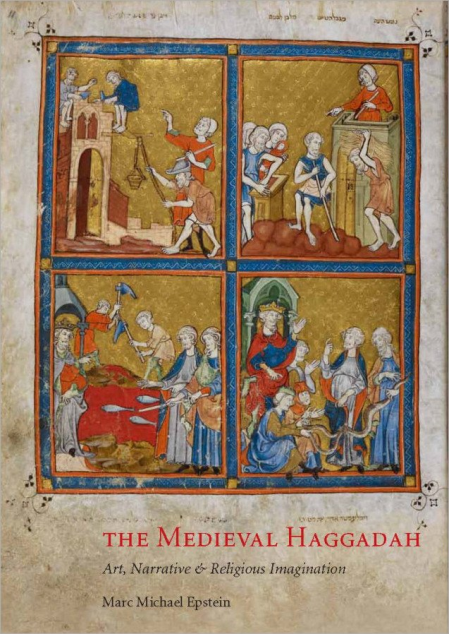 THE MEDIEVAL HAGGADAH
Art, Narrative & Religious Imagination
Marc Michael Epstein